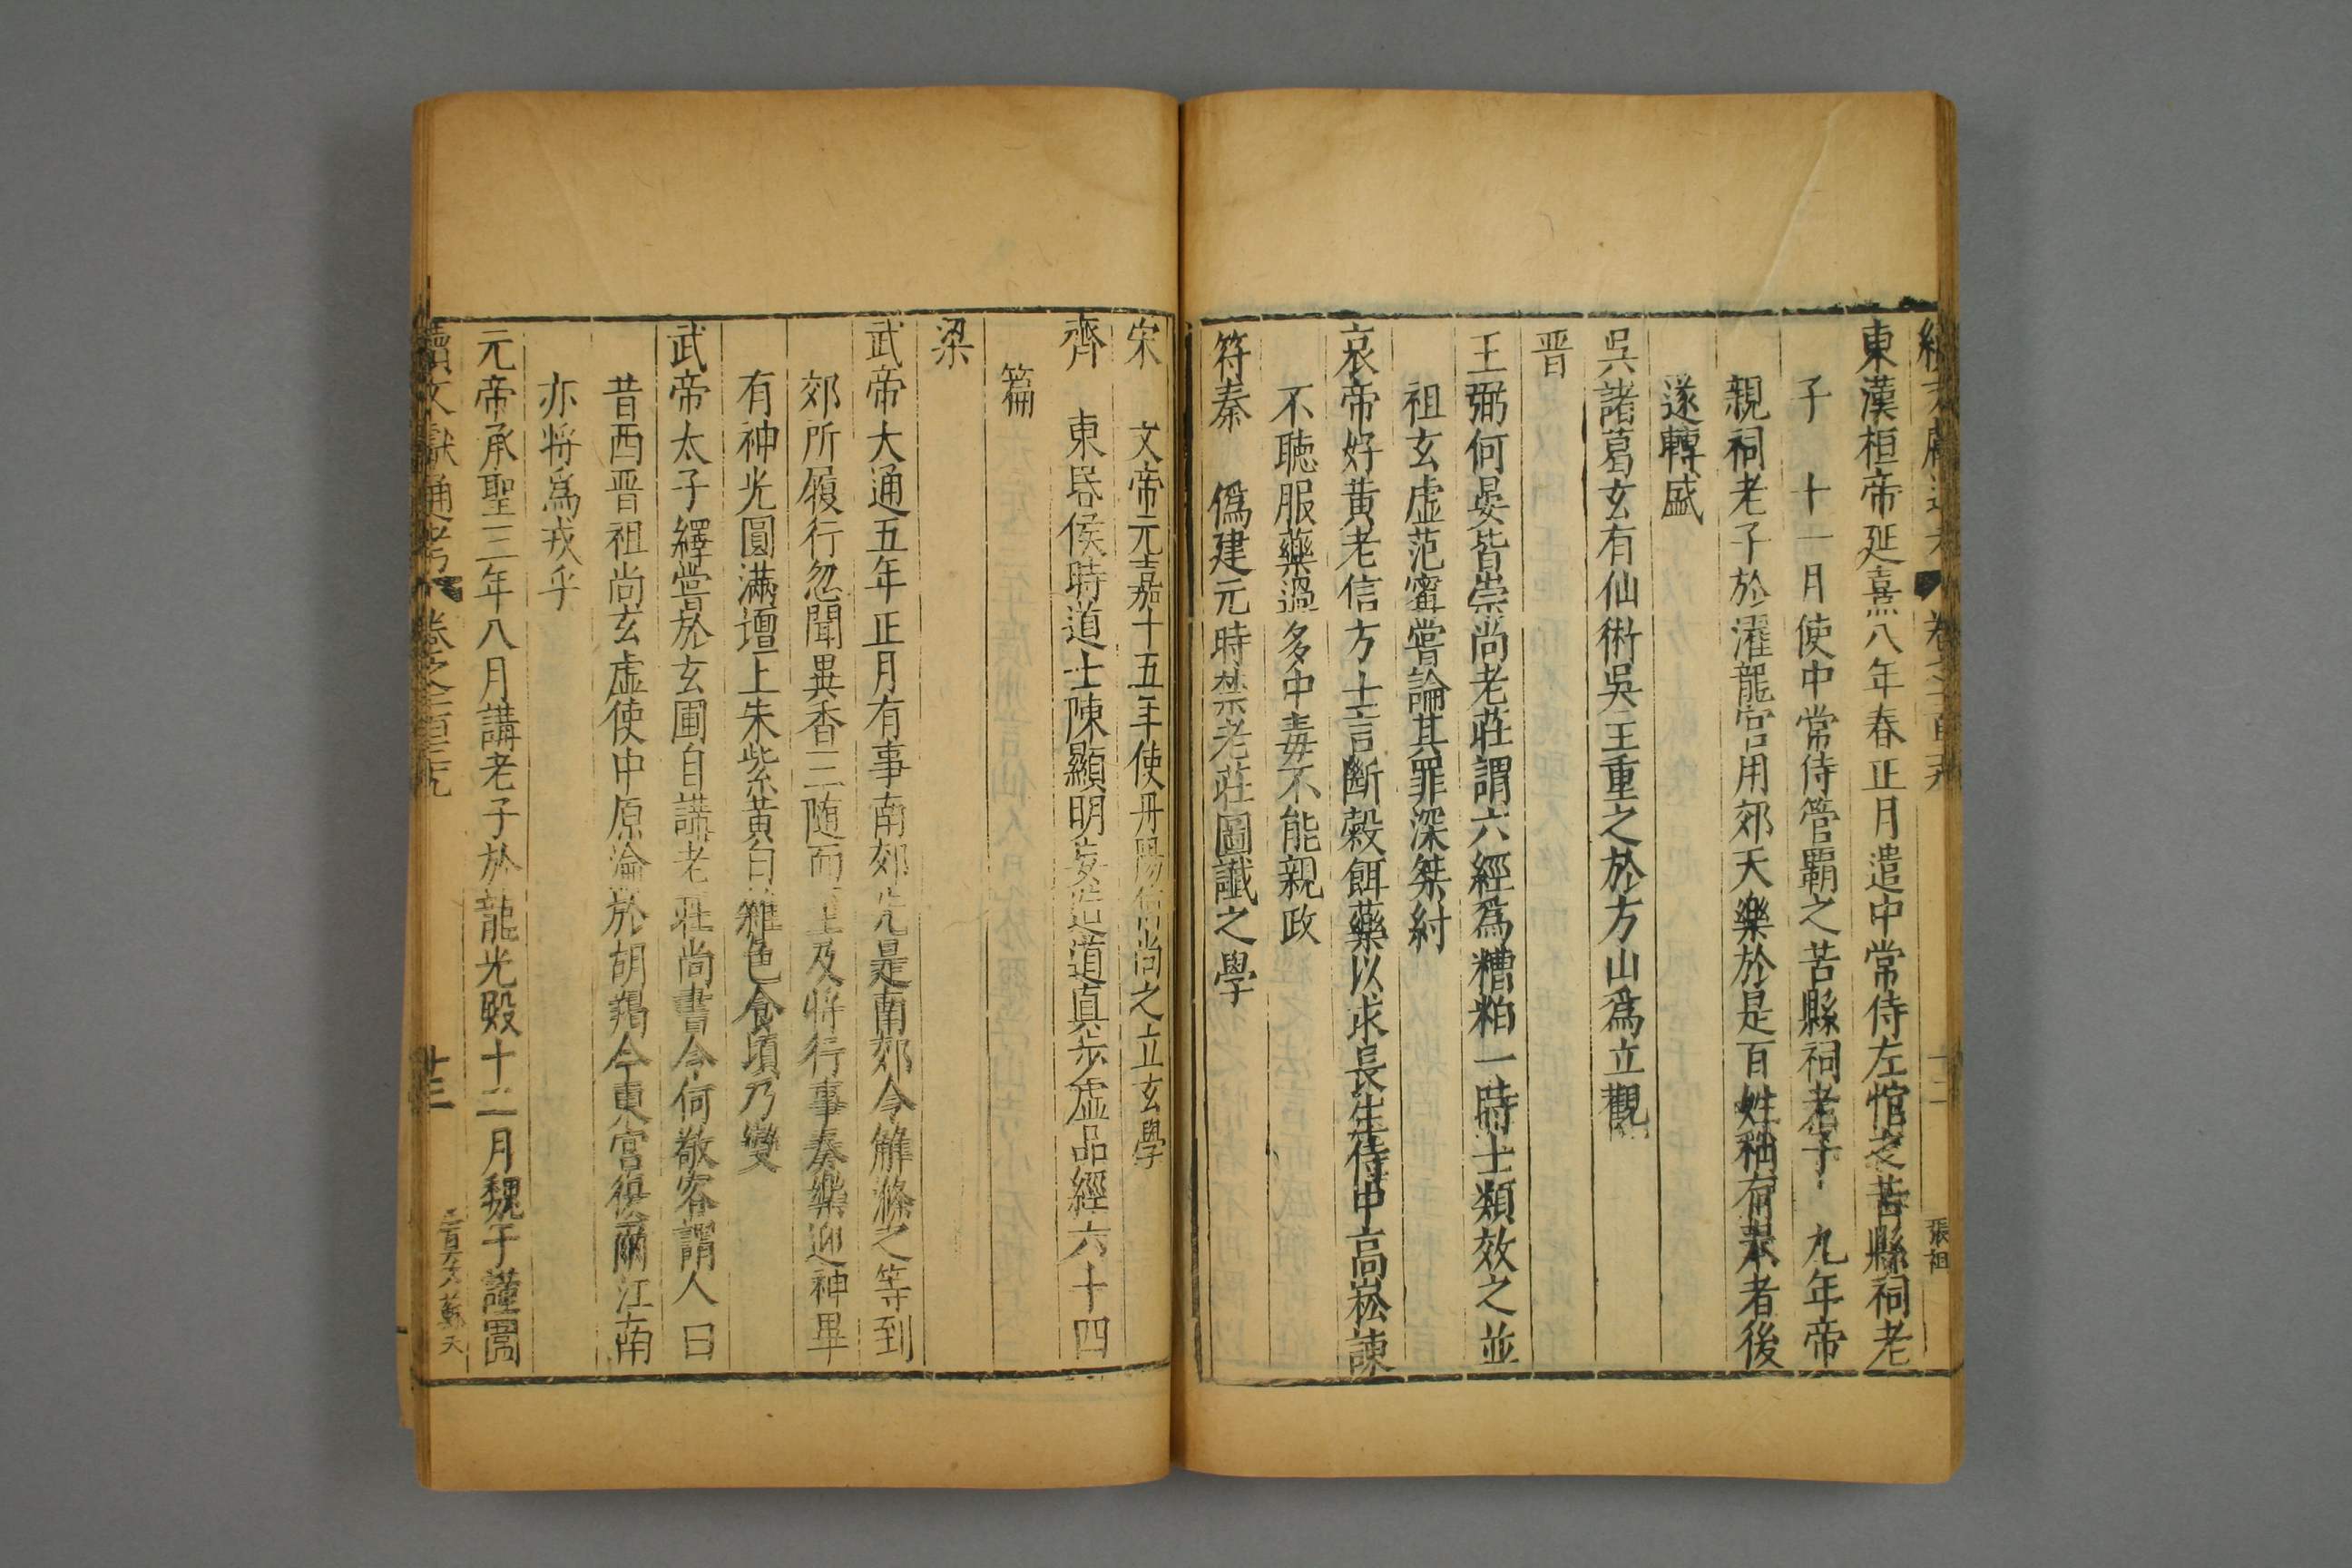 東漢桓帝延熹八年春正月遣中常侍左悺之苦縣祠老
子 十一月使中常侍管霸之苦縣祠老子 九年帝
親祠老子於濯龍宮用郊天樂於是百姓稍有奉者後
遂轉盛
吳諸葛玄有仙術吳王重之於方山為立觀
晉
王弼何晏皆崇尚老莊謂六經為糟粕一時士類效之並
祖玄虛范寗嘗論其罪深桀紂
哀帝好黃老信方士言斷穀餌藥以求長生侍中高崧諫
不聽服藥過多中毒不能親政
符秦 僞建元時禁老莊圖讖之學
張祖
宋 文帝元嘉十五年使丹陽尚之立玄學
齊 東昏侯時道士陳顯明妄造道真步虛品經六十四
篇
梁
武帝大通五年正月有事南郊先是南郊令解滌之等到
郊所履行忽聞異香三隨而至及將行事奏樂迎神畢
有神光圓滿壇上朱紫黃白雜色食頃乃變
武帝太子繹嘗於玄圃自講老莊尚書令何敬容謂人曰
昔西晉祖尚玄虛使中原淪於胡羯今東宮復爾江南
亦將為戎乎
元帝承聖三年八月講老子於龍光殿十二月魏于謹圍
續文獻通考 卷之二百三十九 十三